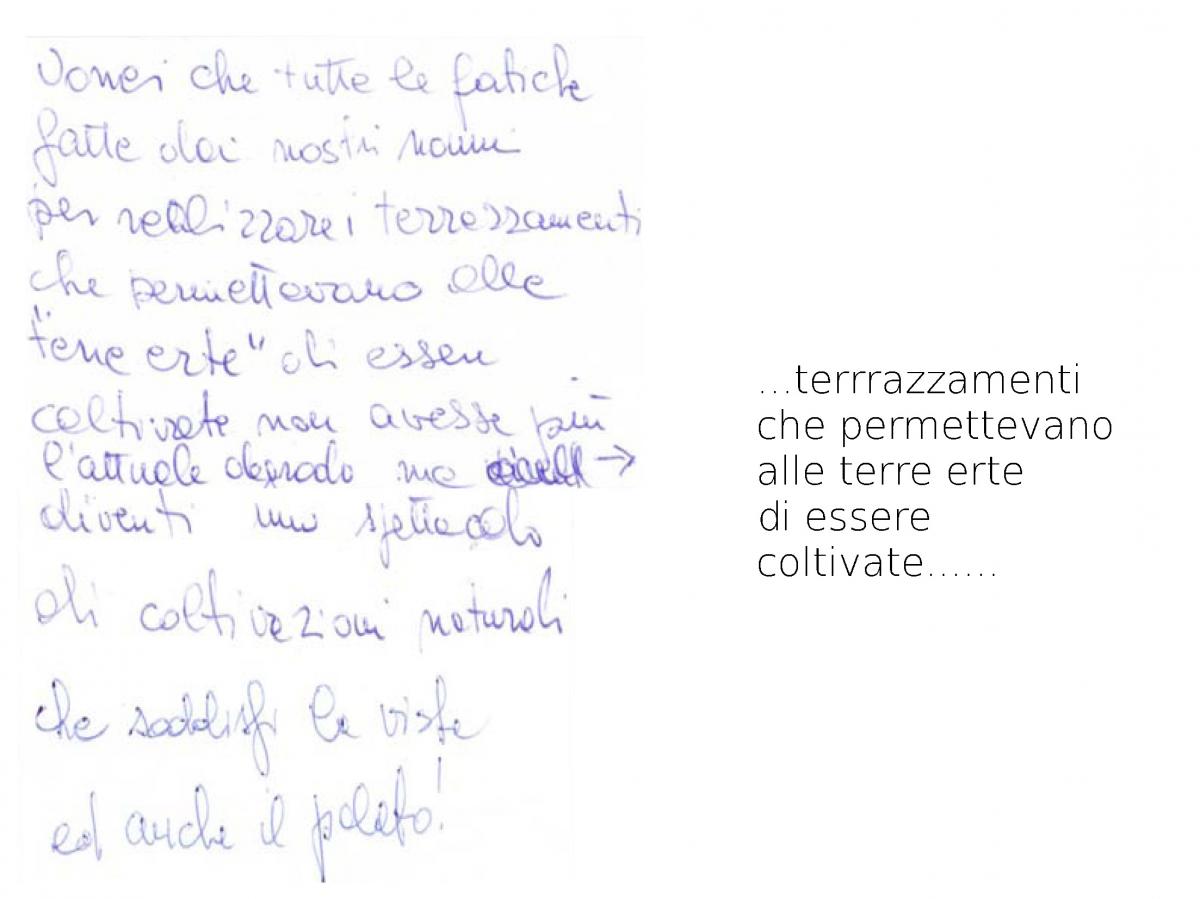 Vorrei che tutte le fatiche
fatte dai nostri nonni
per realizzare i terrazzamenti
che permettevano alle
"terre erte" di essere
coltivate non avesse più
l'attuale degrado ma →
diventi uno spettacolo
di coltivazioni naturali
che soddisfi la vista
ed anche il palato!
...terrrazzamenti
che permettevano
alle terre erte
di essere
coltivate......